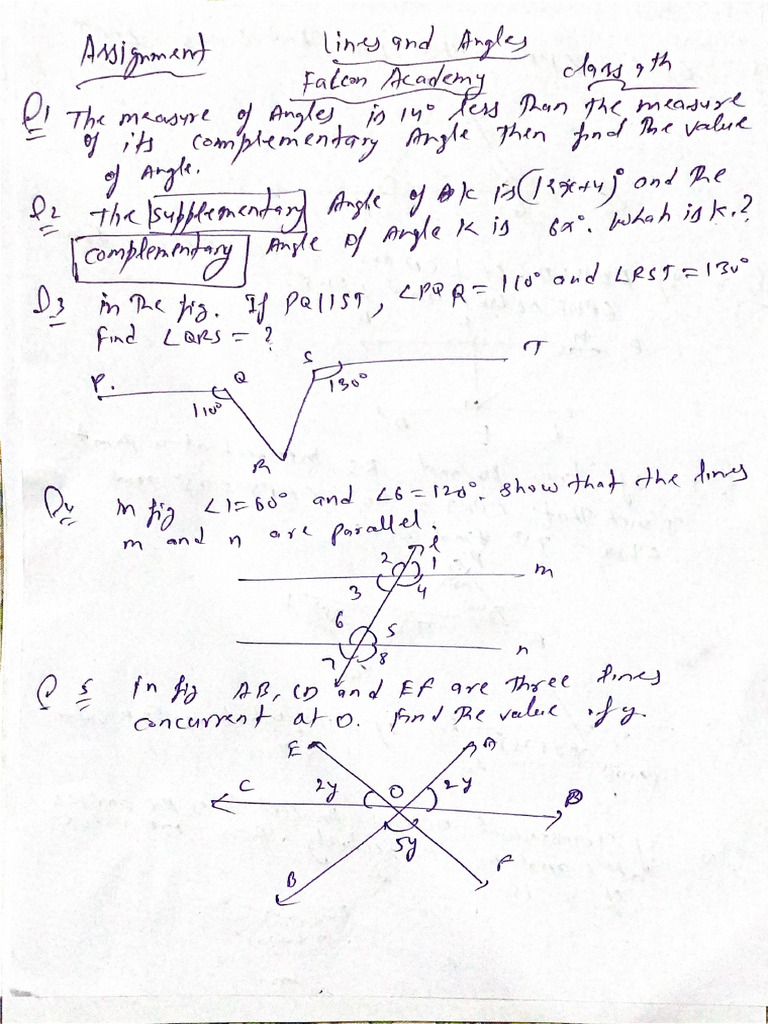 Assignment
Lines and Angles
Falcon Academy
class 9th
Q1 The measure of Angles is 14° less than the measure
of its complementary Angle then find the value
of Angle.
Q2 The supplementary Angle of K is (12x+4)° and the
complementary Angle of Angle K is 6x°. What is K.?
Q3 in the fig. If PQ||ST, ∠PQR = 110° and ∠RST = 130°
find ∠QRS = ?
S T
P. Q 130°
110°
R
Q4 In fig ∠1=60° and ∠6=120°. show that the lines
m and n are parallel.
l
2 1
m
3 4
6 5
n
7 8
Q5 In fig AB, CD and EF are three lines
concurrent at O. find the value of y.
E A
C 2y O 2y
D
5y
B F